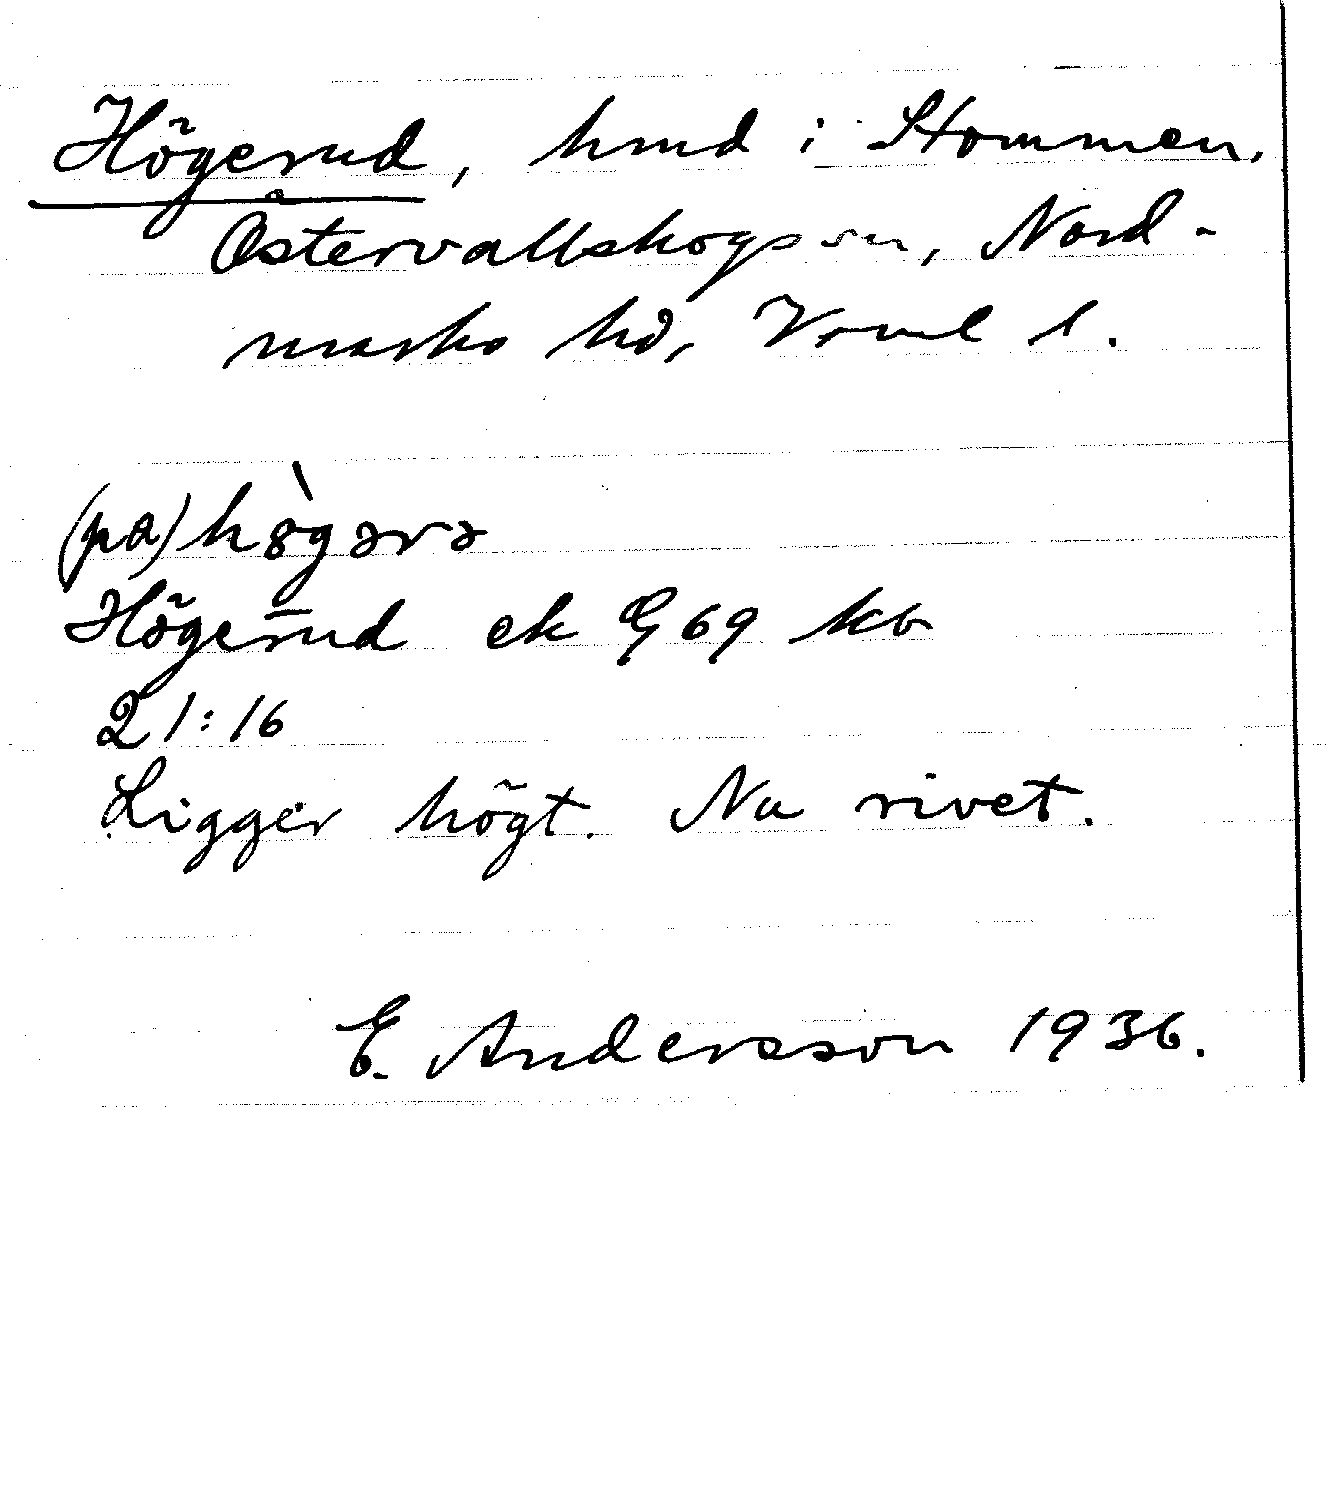 Högerud, hmd i Stommen,
Östervallskogs sn, Nord-
marks hd, Värml l.
(pa) hògərə
Högerud ek G 69 kb
21:16
Ligger högt. Nu rivet.
E. Andersson 1936.